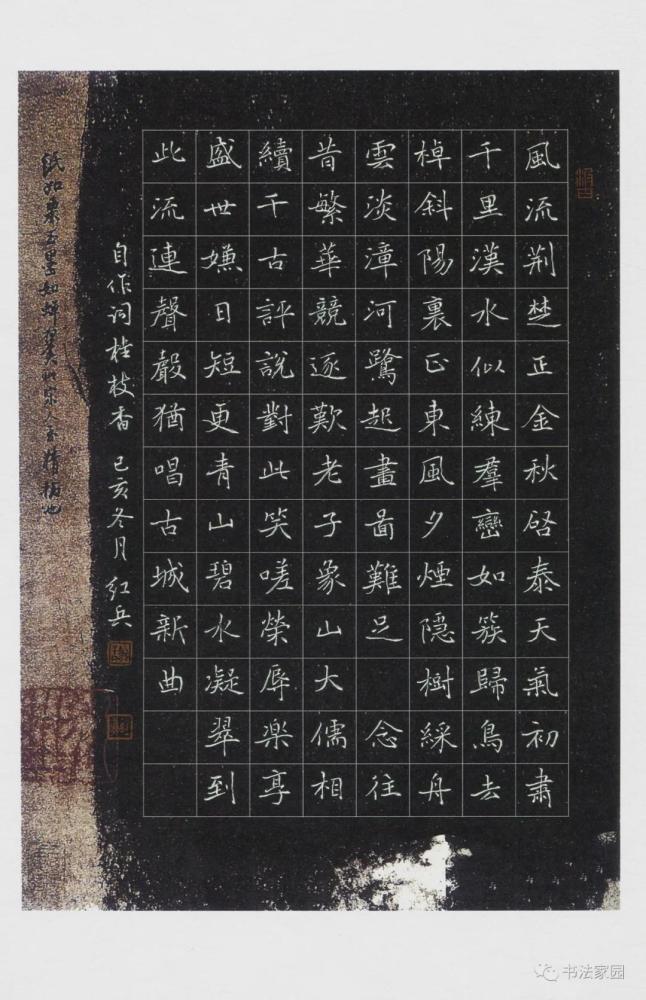 風流荆楚正金秋启泰天氣初肅
千里漢水似練羣巒如簇歸鳥去
棹斜陽裏正東風夕煙隱樹綵舟
雲淡漳河鷺起畫啚難足 念往
昔繁華競逐歎老子象山大儒相
續千古評說對此笑嗟榮辱楽享
盛世嫌日短更青山碧水凝翠到
此流連聲聲猶唱古城新曲
自作词桂枝香 己亥冬月 红兵
紙如栗玉墨如蟬翼
书法家园